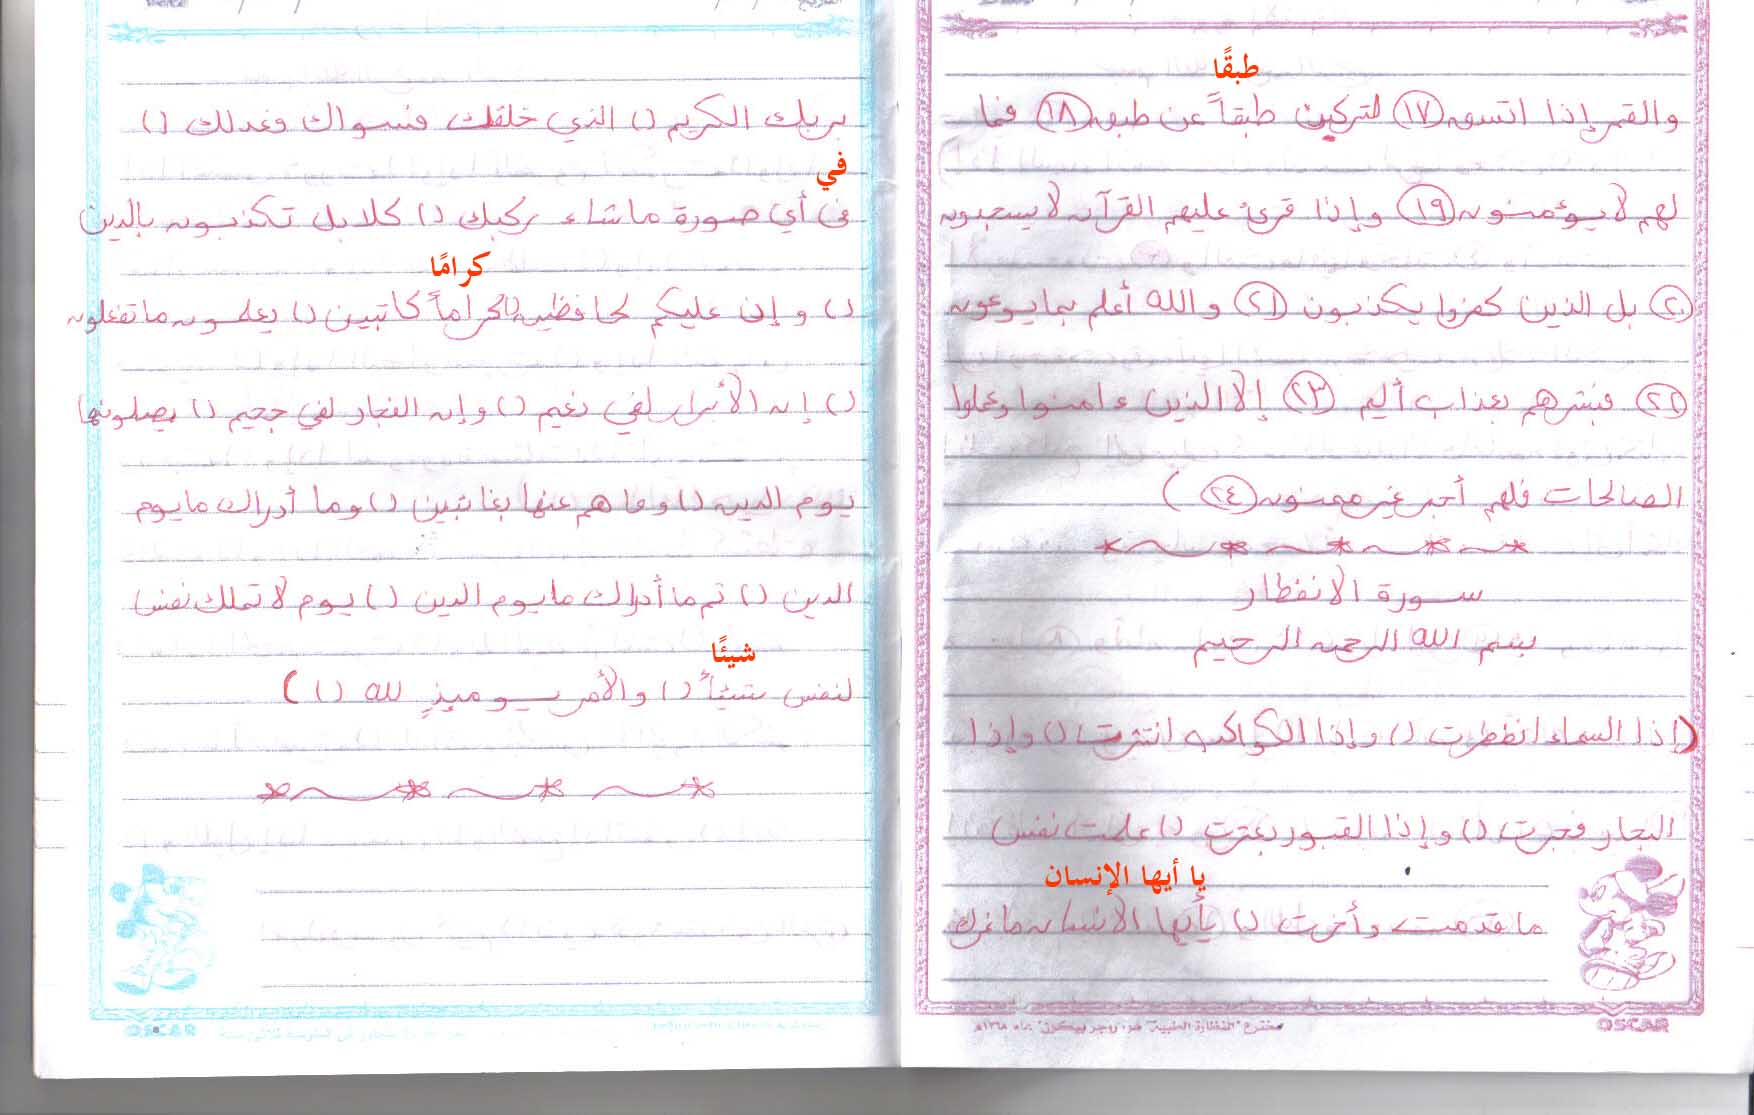 طبقًا
والقمر إذا اتسق (١٧) لتركبن طبقاً عن طبق (١٨) فما
لهم لا يؤمنون (١٩) وإذا قرئ عليهم القرآن لا يسجدون
(٢٠) بل الذين كفروا يكذبون (٢١) والله أعلم بما يوعون
(٢٢) فبشرهم بعذاب أليم (٢٣) إلا الذين ءامنوا وعملوا
الصالحات فلهم أجر غير ممنون (٢٤) )
سورة الانفطار
بسم الله الرحمن الرحيم
(إذا السماء انفطرت () وإذا الكواكب انتثرت () وإذا
البحار فجرت () وإذا القبور بعثرت () علمت نفس
يا أيها الإنسان
ما قدمت وأخرت () يأيها الانسان ما غرك
OSCAR
بربك الكريم () الذي خلقك فسواك وعدلك ()
في
فى أي صورة ما شاء ركبك () كلا بل تكذبون بالدين
كرامًا
() وإن عليكم لحافظين () كراماً كاتبين () يعلمون ما تفعلون
() إن الأبرار لفي نعيم () وإن الفجار لفي جحيم () يصلونها
يوم الدين () وما هم عنها بغائبين () وما أدراك ما يوم
الدين () ثم ما أدراك ما يوم الدين () يوم لا تملك نفس
شيئًا
لنفس شيئاً () والأمر يومئذٍ لله () )
OSCAR